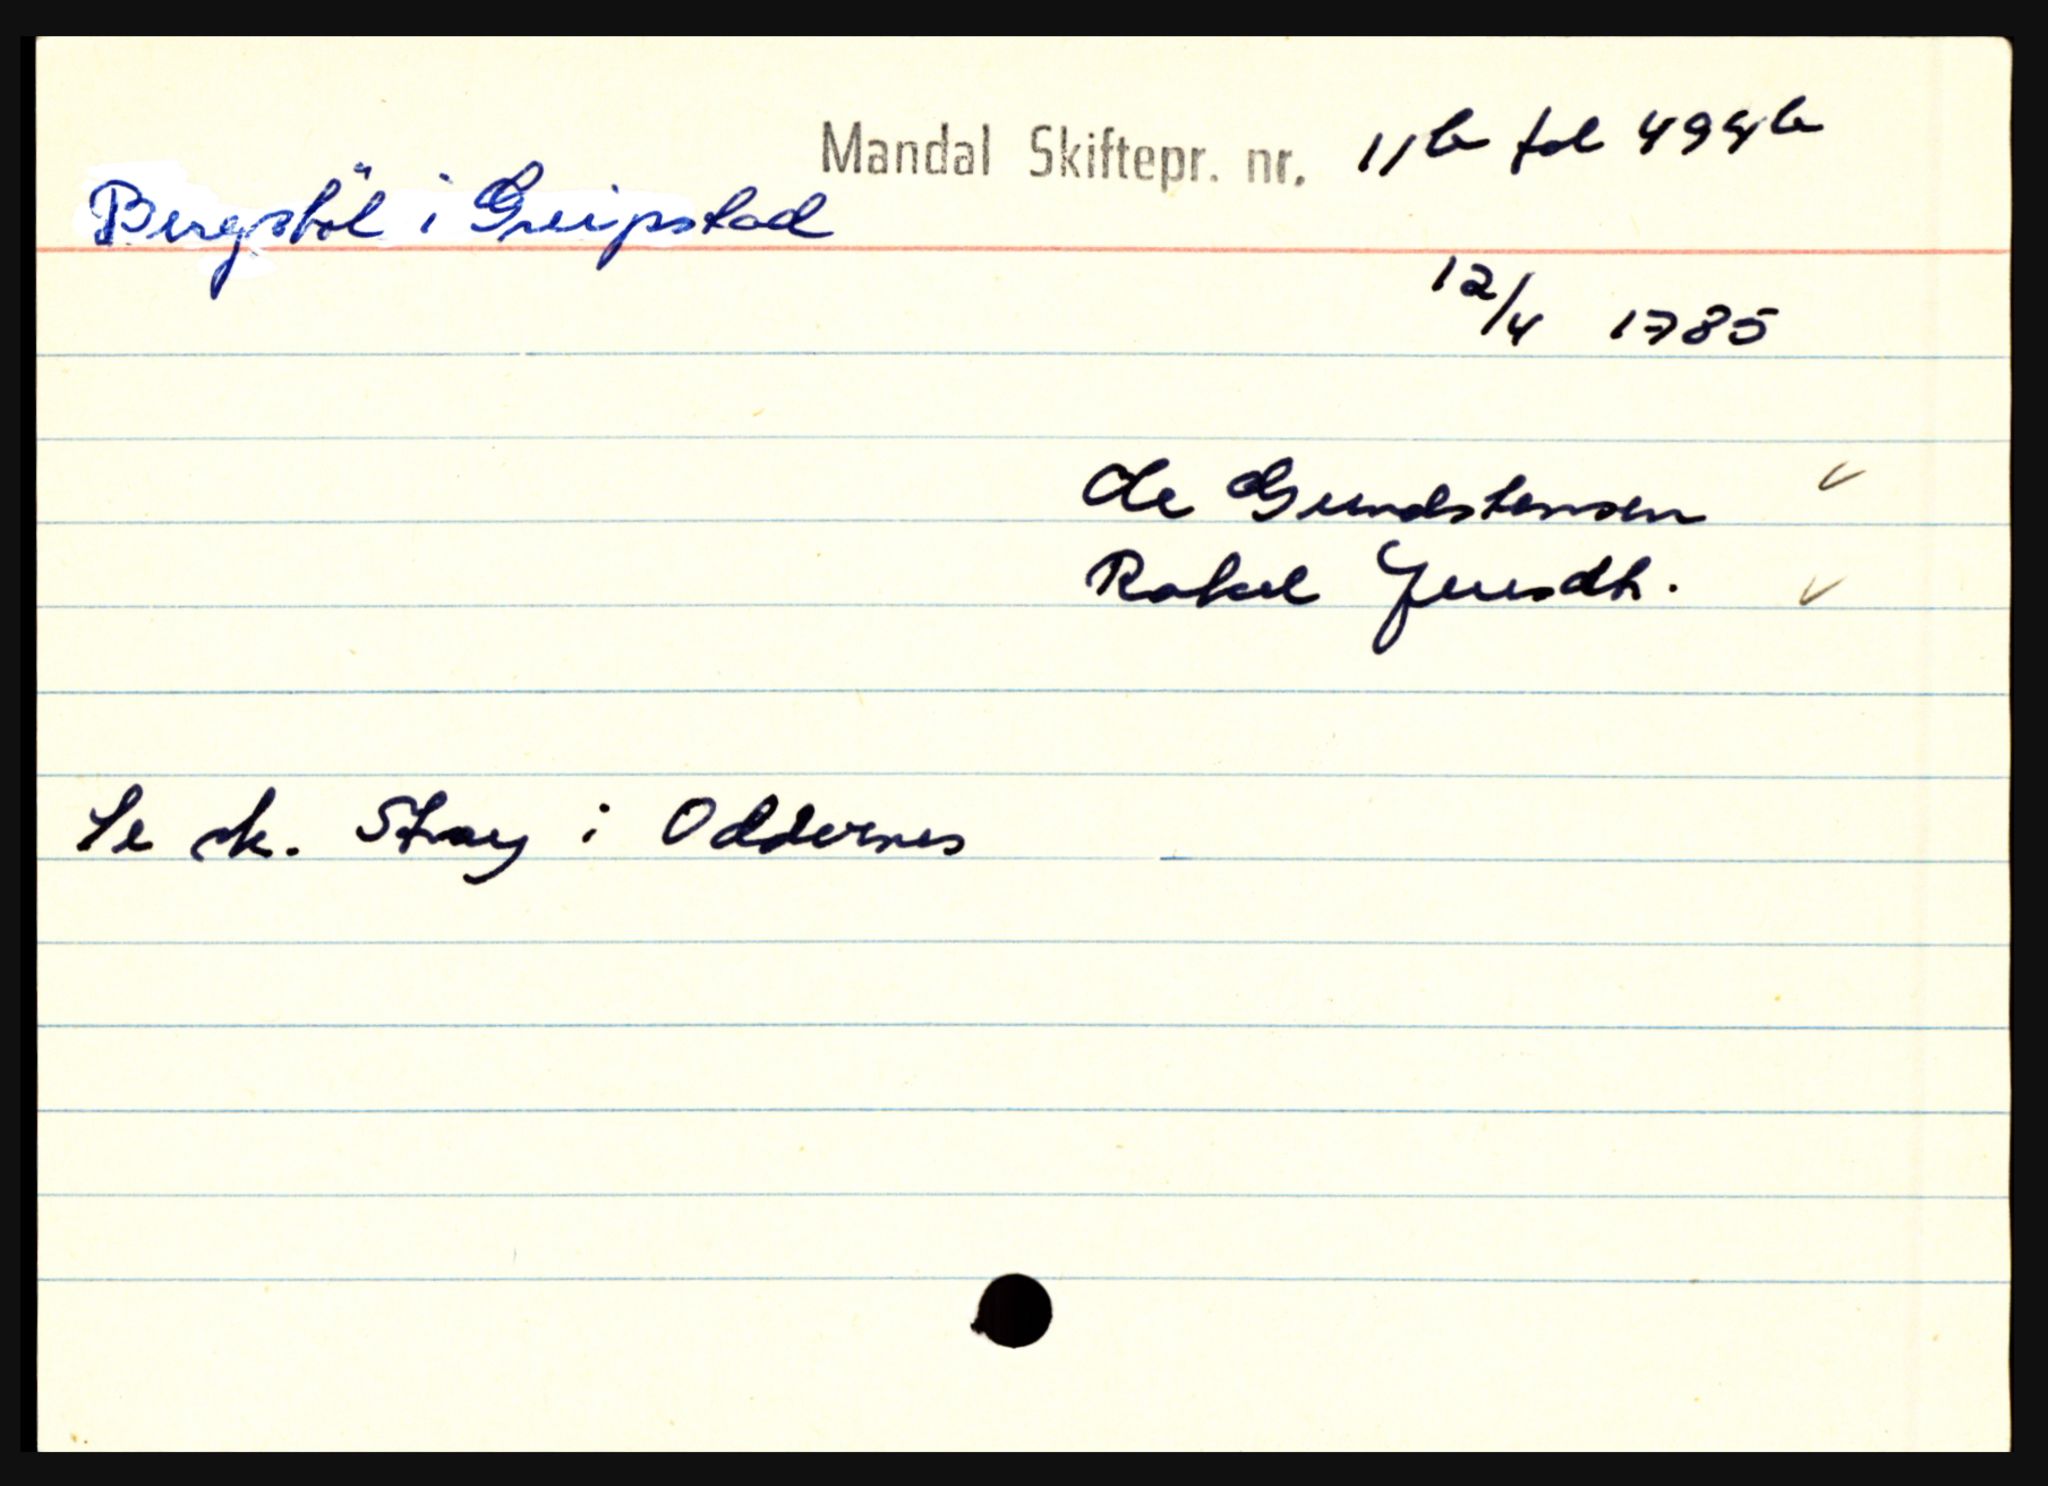 Mandal Skiftepr. nr. 11b fol 499b
Bergstöl i Greipstad
12/4 1785
Ole Gundstensen ✓
Rakel Jensdtr. ✓
Se sk. Stray i Oddernes